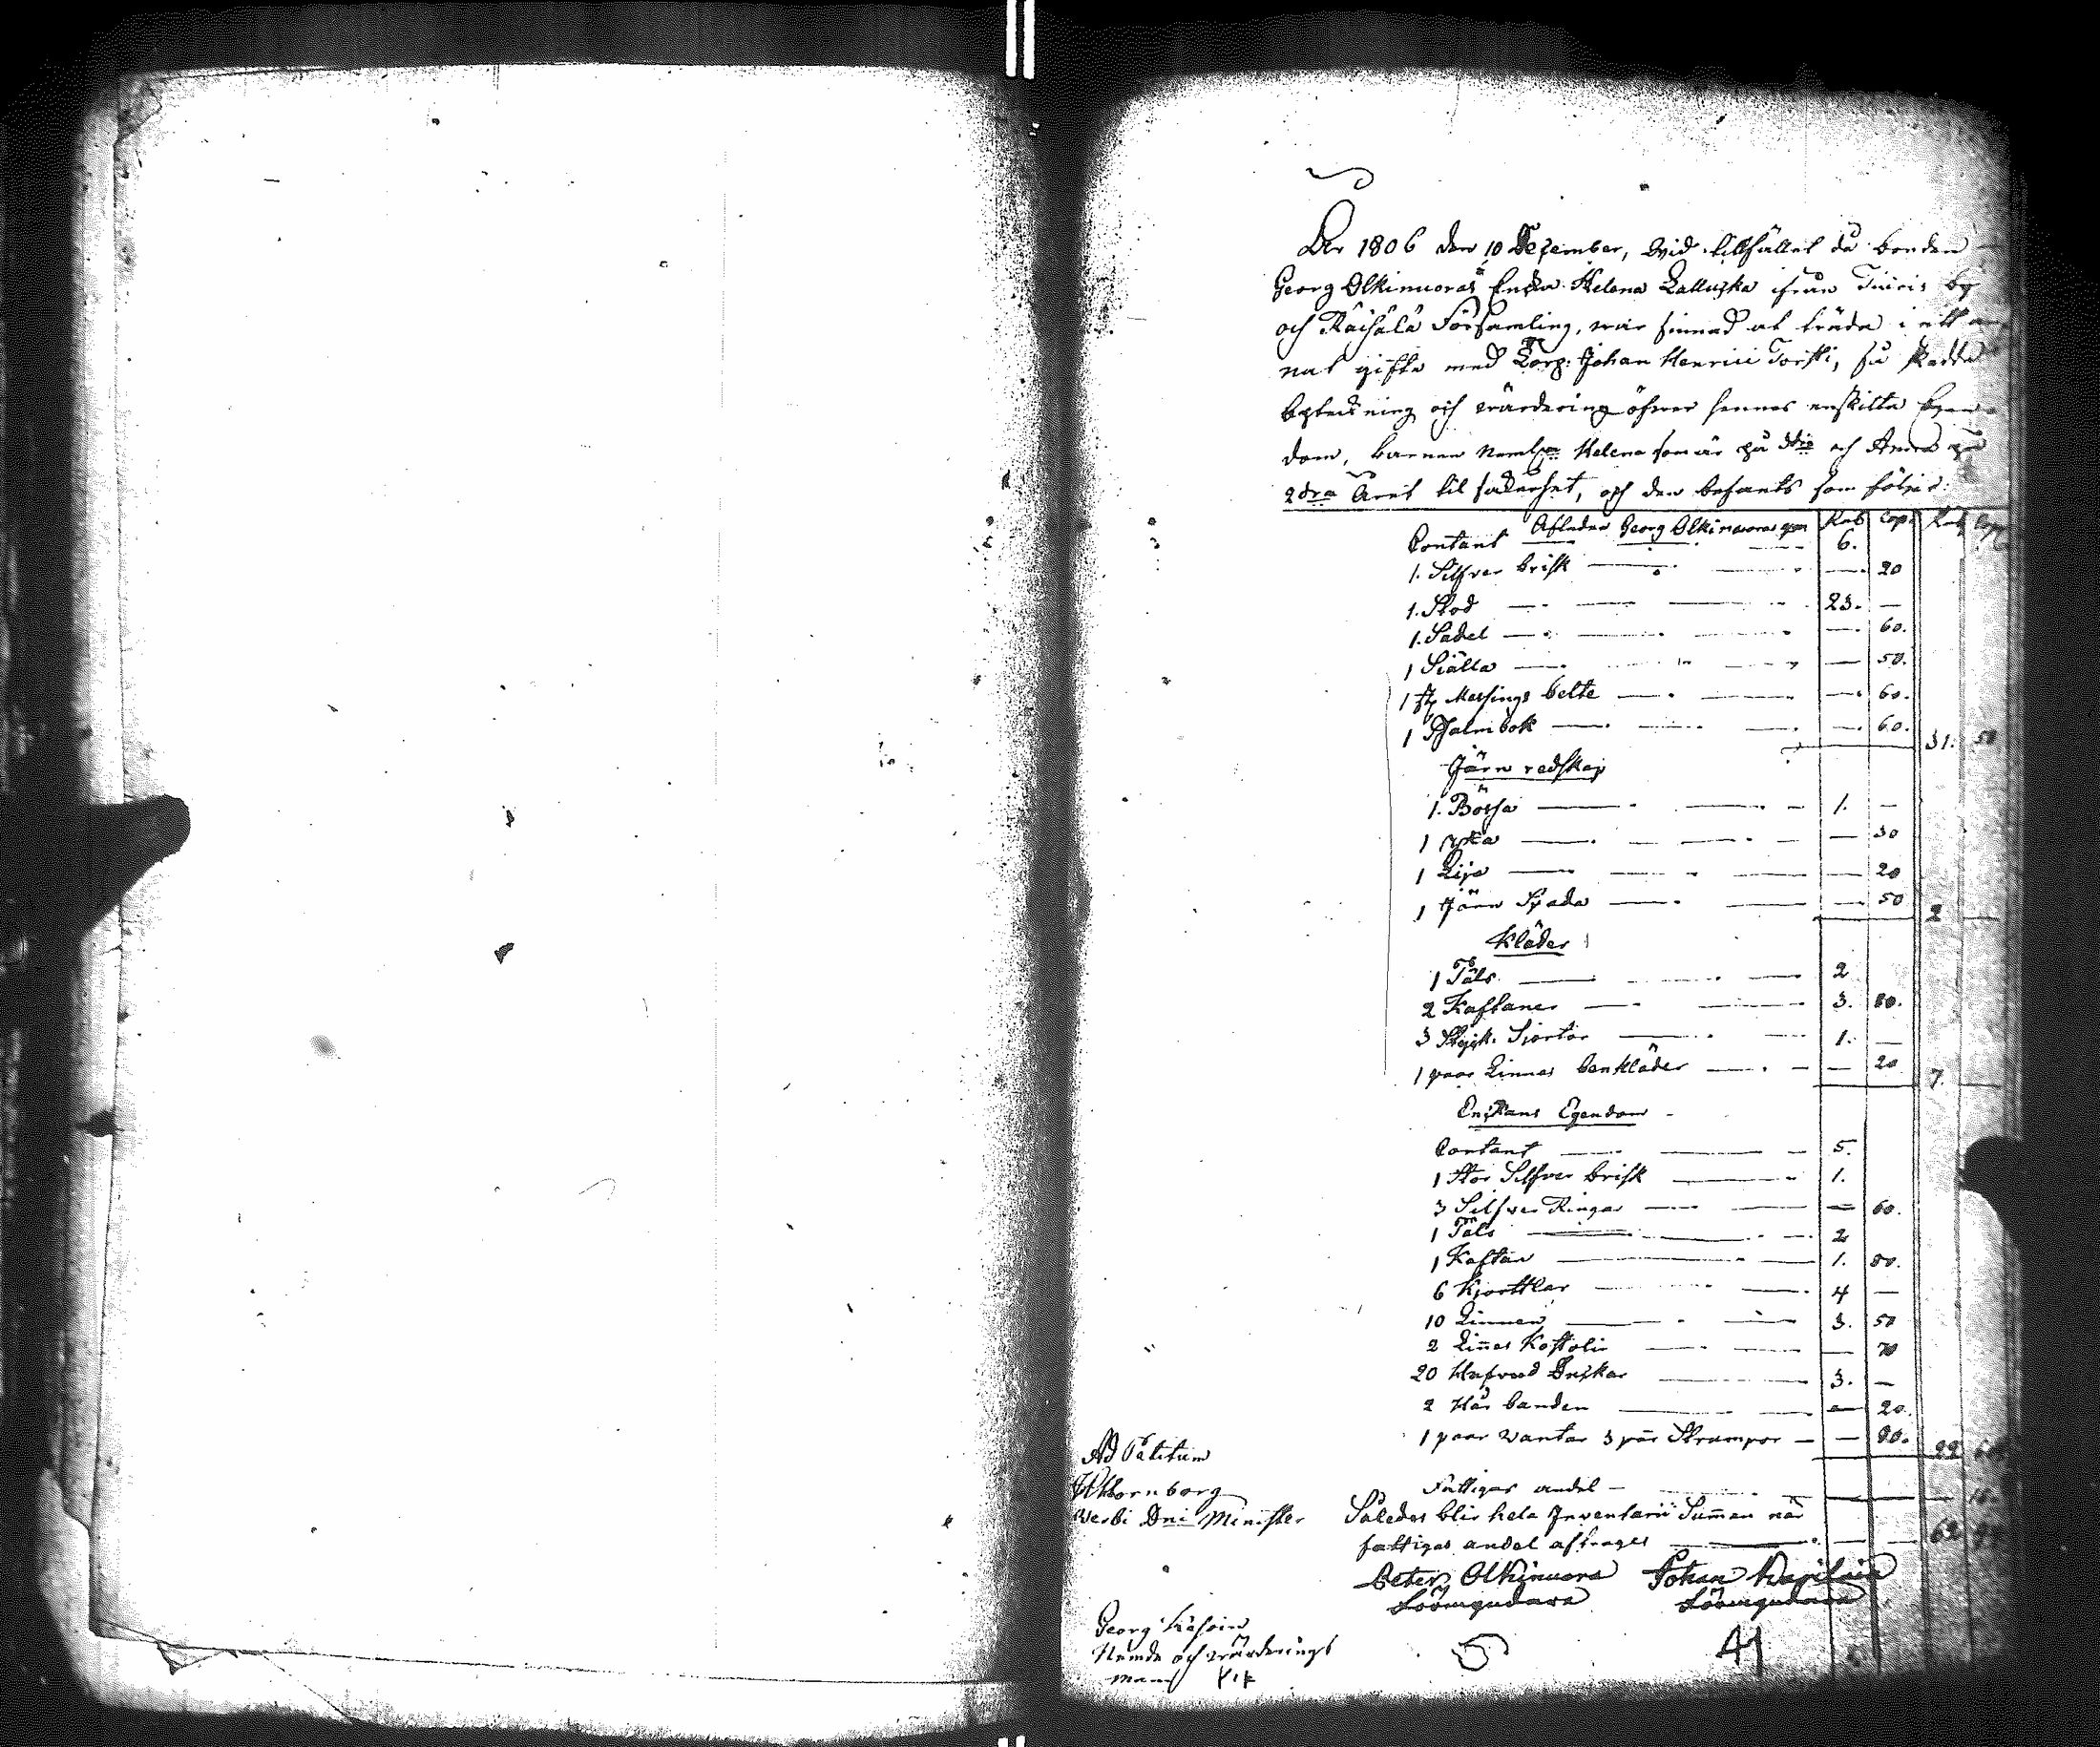 År 1806 den 10 Dezember, wid tillfället då bonden
Georg Olkinuoras Enka Helena Lalluzka ifrån Tiuris by
och Räisälä Församling, war sinnad at träda i ett an-
nat gifte med Corp: Johan Henrici Torsti, så skedde
upteckning och wärdering öfwer hennes enskilta Egen-
dom, barnen Helena som är på och Andre på
2dra Året til säkerhet, och den befants som följer:
Afledne Georg Olkinuoras Rub Cop. Rub Cop
Contant 6.
1. Silfver brisk — 20
1. Stod 23. —
1. Sadel — 60.
1 Siälla — 50.
1 Messings belte — 60.
1 Psalmbok — 60. 31. 50
Järn redskap
1. Bössa 1. —
1 yxa — 30
1 Lija — 20
1 Järn Spada — 50 2 —
Kläder
1 Päls 2
2 Kaftaner 3. 80.
3 Styck. Sjortor 1. —
1 paar Linnes benkläder — 20 7. —
Enkans Egendom
Contant 5.
1 Stor Silfver brisk 1.
3 Silfver Ringar — 60.
1 Päls 2
1 Kaftan 1. 80.
6 Kjorttlar 4 —
10 Linnen 3. 50
2 Linnes Kostoli — 70
20 Hufvud Dukar 3. —
2 Hår banden — 20.
1 paar wantar 3 pār Strumpor — 80. 22
Fattigas andel
Således blir hela Inventarii Summan när
fattigas andel aftages 62
Ad Petitum
Hornborg
Verbi Dni Minister
Peter Olkinuora Johan
Georg
Nämde och wärderings
man
41